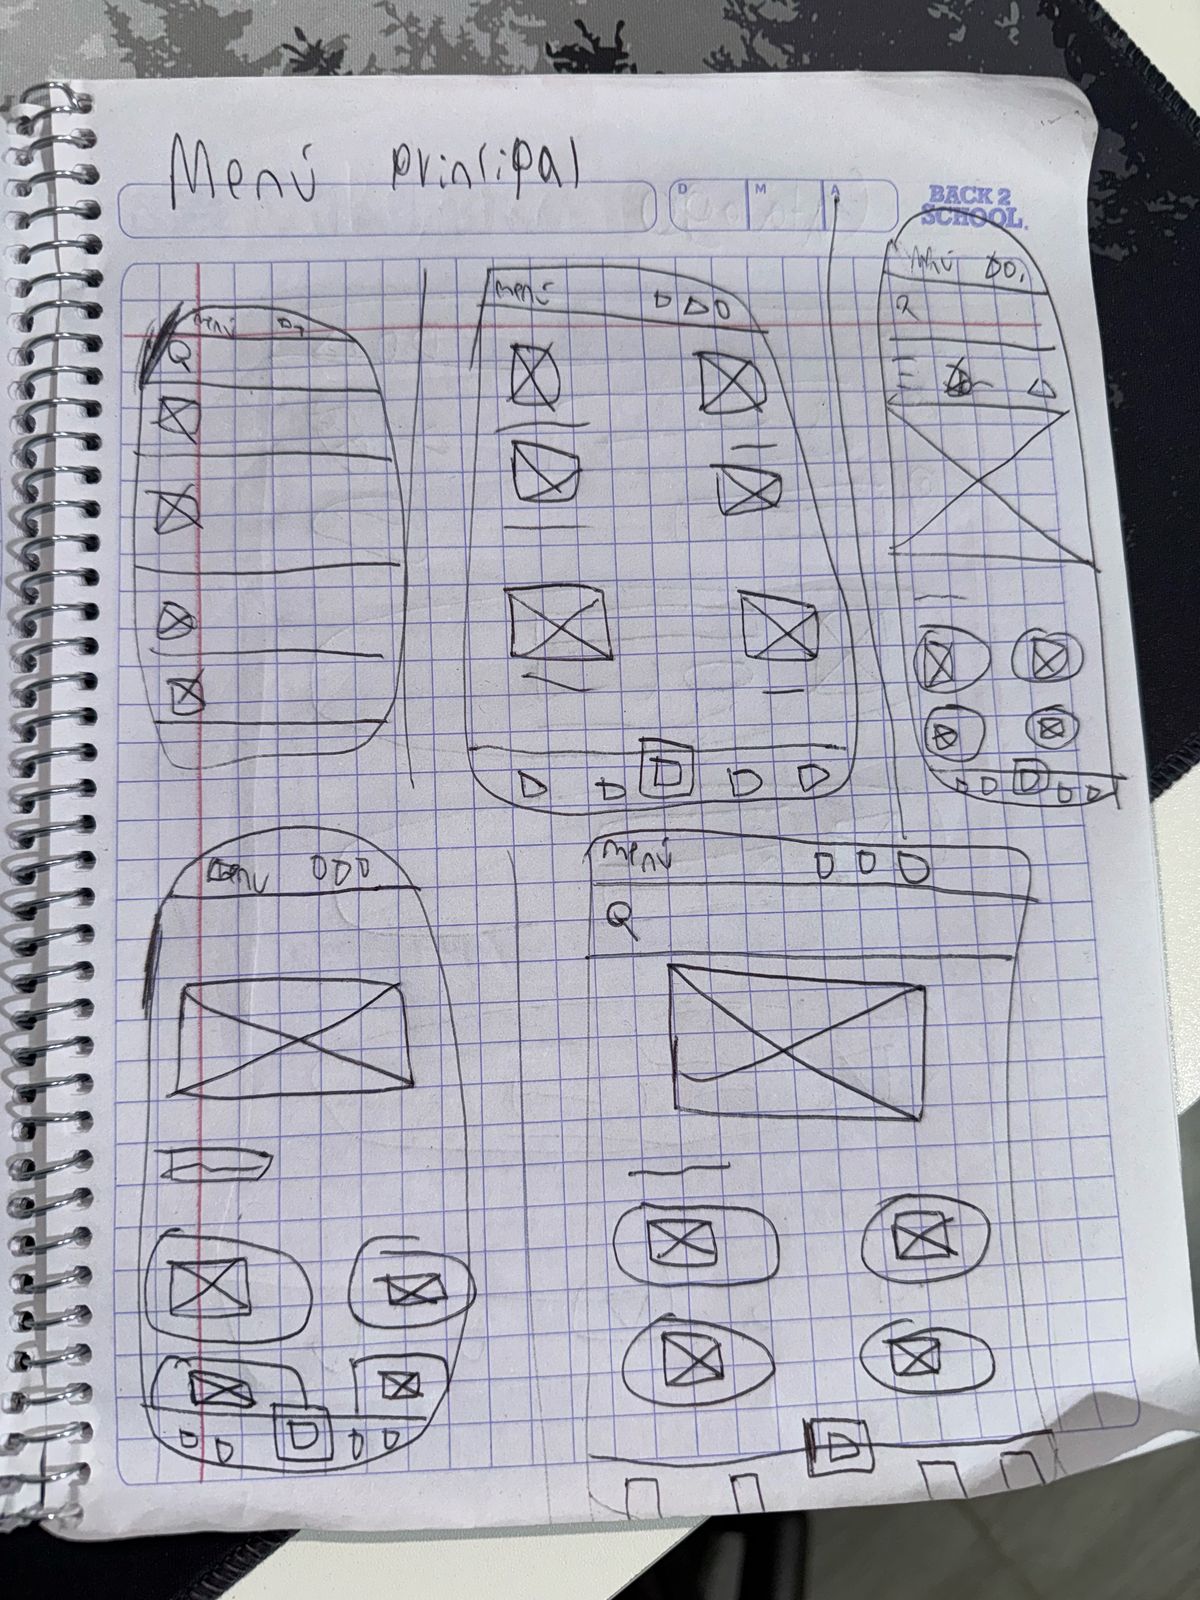 Menú principal
D M A
BACK 2
SCHOOL
menú
menú
Menú
menú